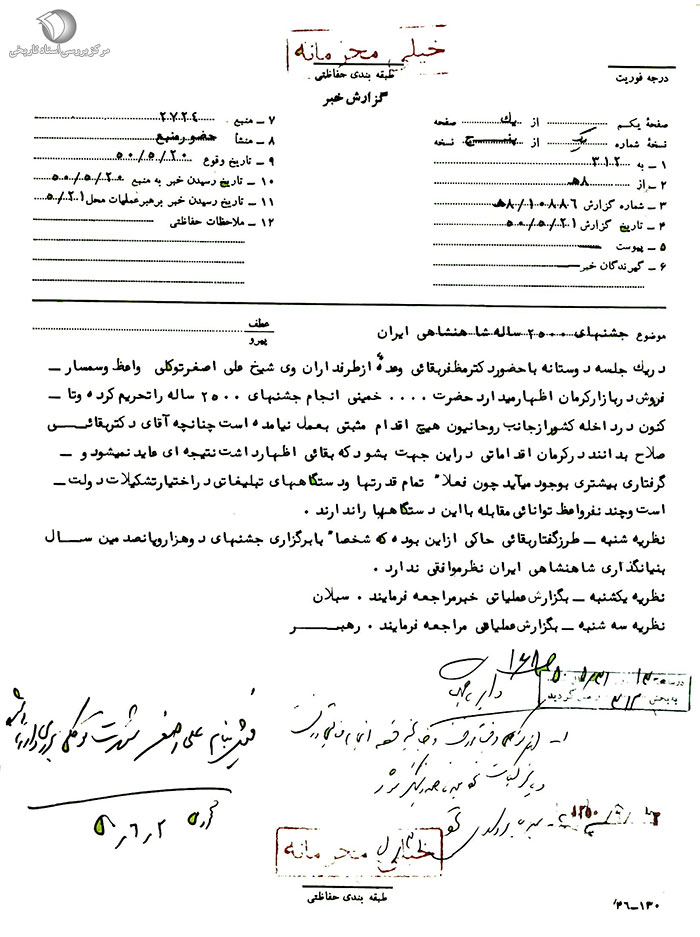 مرکز بررسی اسناد تاریخی
خیلی محرمانه
طبقه بندی حفاظتی
گزارش خبر
درجه فوریت
صفحهٔ یکم از یك صفحه
نسخهٔ شماره یک از پنج نسخه
۱ ـ به ۳۱۲
۲ ـ از ۸ﻫ
۳ ـ شماره گزارش ۸/۱۰۸۸۶ﻫ
۴ ـ تاریخ گزارش ۵۰/۵/۲۱
۵ ـ پیوست
۶ ـ گیرندگان خبر
۷ ـ منبع ۲۷۲۴
۸ ـ منشأ حضور منبع
۹ ـ تاریخ وقوع ۵۰/۵/۲۰
۱۰ ـ تاریخ رسیدن خبر به منبع ۵۰/۵/۲۰
۱۱ ـ تاریخ رسیدن خبر برهبر عملیات محل ۵/۲۱
۱۲ ـ ملاحظات حفاظتی
موضوع جشنهای ۲۵۰۰ ساله شاهنشاهی ایران
عطف
پیرو
در یك جلسه دوستانه با حضور دکتر مظفر بقائی وعدهٔ از طرفداران وی شیخ علی اصغر توکلی واعظ وسمسار ـ
فروش در بازار کرمان اظهار میدارد حضرت .... خمینی انجام جشنهای ۲۵۰۰ ساله را تحریم کرده وتا ـ
کنون در داخله کشور از جانب روحانیون هیچ اقدام مثبتی بعمل نیامده است چنانچه آقای دکتر بقائی
صلاح بدانند در کرمان اقداماتی در این جهت بشود که بقائی اظهار داشت نتیجه ای عاید نمیشود و ـ
گرفتاری بیشتری بوجود میآید چون فعلاً تمام قدرتها ودستگاههای تبلیغاتی در اختیار تشکیلات دولت ـ
است وچند نفر واعظ توانائی مقابله با این دستگاهها را ندارند .
نظریه شنبه ـ طرز گفتار بقائی حاکی از این بوده که شخصاً با برگزاری جشنهای دوهزار وپانصدمین سـال
بنیانگذاری شاهنشاهی ایران نظر موافقی ندارد .
نظریه یکشنبه ـ بگزارش عملیاتی خبر مراجعه فرمایند . سبلان
نظریه سه شنبه ـ بگزارش عملیاتی مراجعه فرمایند . رهبـر
خیلی محرمانه
طبقه بندی حفاظتی
۱۳۰ـ۳۶